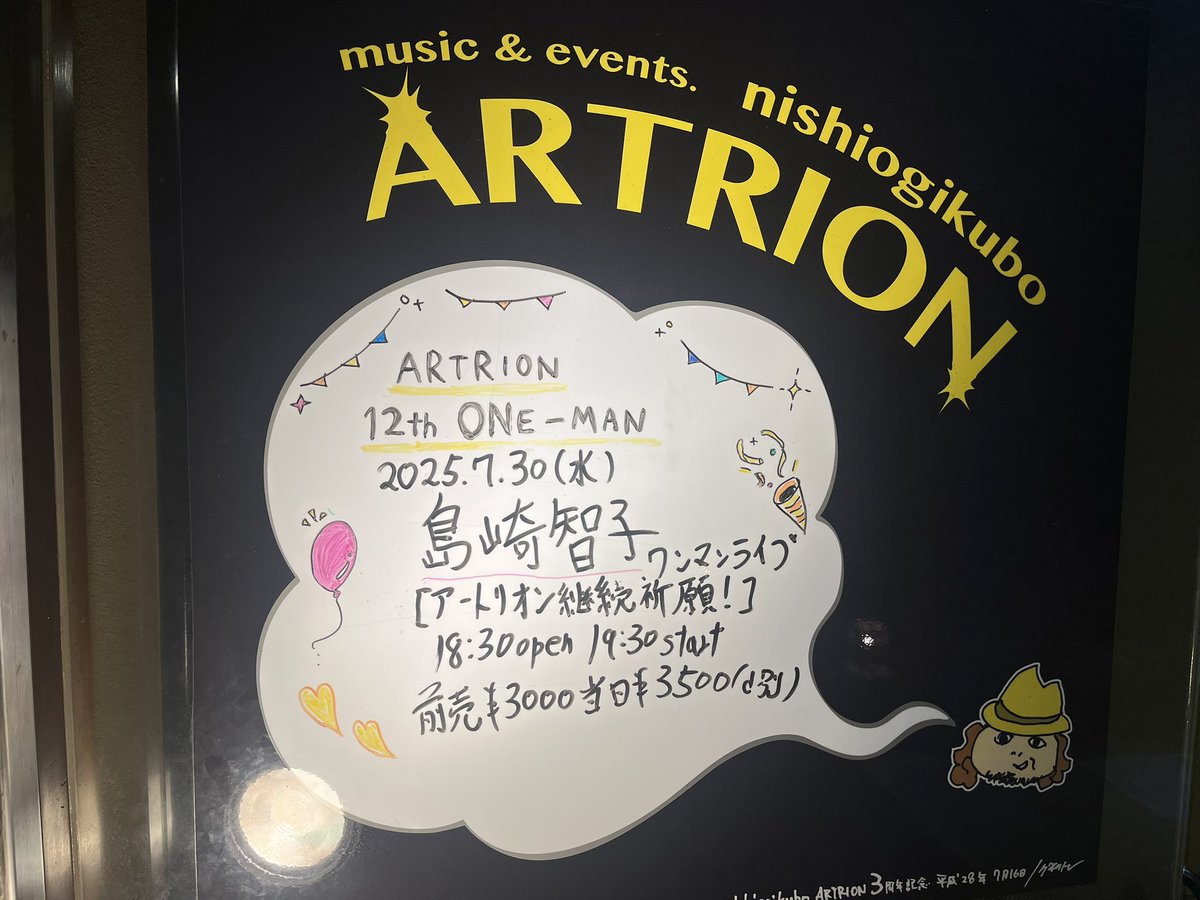 music & events. nishiogikubo
ARTRION
ARTRION
12th ONE-MAN
2025.7.30(水)
島崎智子ワンマンライブ
[アートリオン継続祈願!]
18:30open 19:30start
前売¥3000当日¥3500(d別)
ARTRION 3周年記念 平成'28年 7月16日